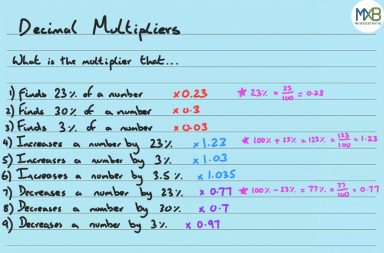 MXB
Decimal Multipliers
What is the multiplier that...
1) Finds 23% of a number ×0.23 ★ 23% = 23/100 = 0.23
2) Finds 30% of a number ×0.3
3) Finds 3% of a number ×0.03
4) Increases a number by 23% ×1.23 ★ 100% + 23% = 123% = 123/100 = 1.23
5) Increases a number by 3% ×1.03
6) Increases a number by 3.5% ×1.035
7) Decreases a number by 23% ×0.77 ★ 100% - 23% = 77% = 77/100 = 0.77
8) Decreases a number by 30% ×0.7
9) Decreases a number by 3% ×0.97